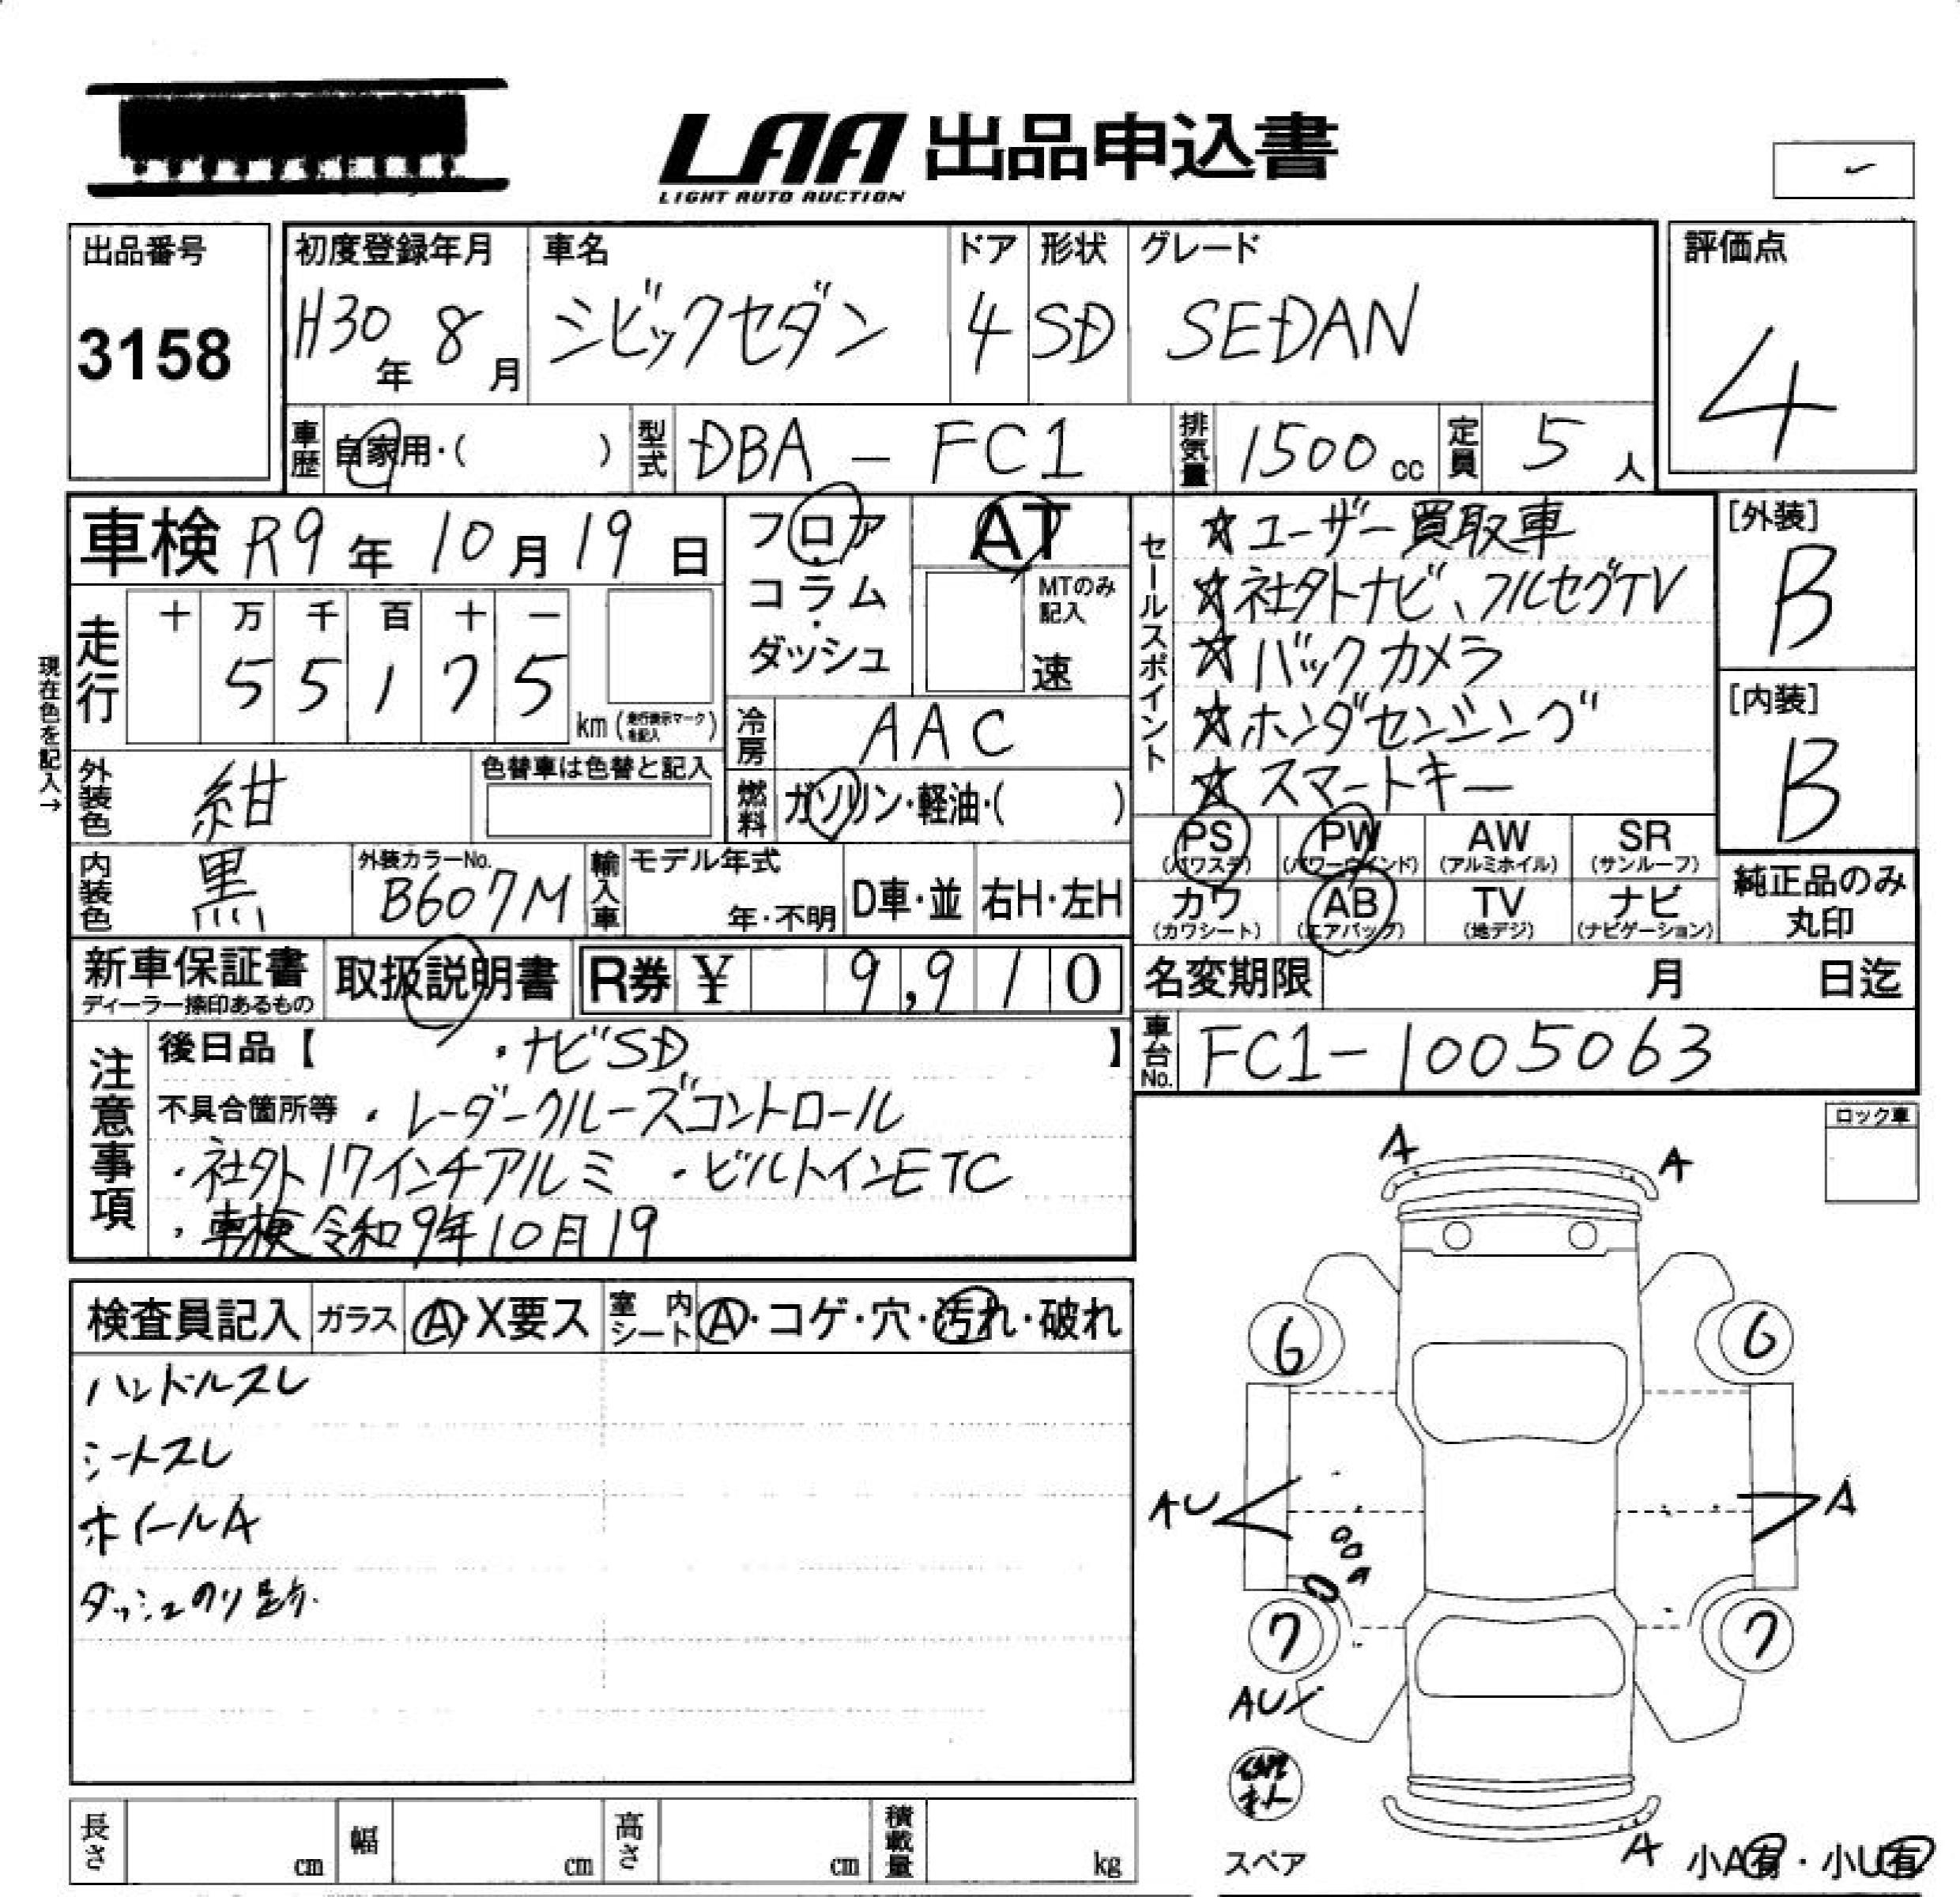 LAA 出品申込書
LIGHT AUTO AUCTION
出品番号
3158
初度登録年月 車名 ドア 形状 グレード 評価点
H30年 8月 シビックセダン 4 SD SEDAN 4
車歴 自家用・( ) 型式 DBA-FC1 排気量 1500cc 定員 5人
車検 R9年 10月 19日
フロア・コラム・ダッシュ
AT
MTのみ記入
速
走行 十 万 千 百 十 一
5 5 1 7 5
km (走行表示マークを記入)
現在色を記入→
冷房 AAC
燃料 ガソリン・軽油・( )
外装色 紺 色替車は色替と記入
内装色 黒 外装カラーNo. B607M 輸入車 モデル年式 年・不明 D車・並 右H・左H
セールスポイント
☆ユーザー買取車
☆社外ナビ、フルセグTV
☆バックカメラ
☆ホンダセンシング
☆スマートキー
[外装]
B
[内装]
B
PS (パワステ) PW (パワーウインド) AW (アルミホイル) SR (サンルーフ)
カワ (カワシート) AB (エアバック) TV (地デジ) ナビ (ナビゲーション)
純正品のみ丸印
新車保証書 取扱説明書 R券 ¥ 9,910
ディーラー捺印あるもの
名変期限 月 日迄
車台No. FC1-1005063
注意事項
後日品【 ・ナビSD 】
不具合箇所等 ・レーダークルーズコントロール
・社外17インチアルミ ・ビルトインETC
・車検令和9年10月19
ロック車
検査員記入 ガラス A・X要ス 室内シート A・コゲ・穴・汚れ・破れ
ハンドルスレ
シートスレ
ホイールA
ダッシュのり跡
A A
6 6
AU A
7 7
AU
スペア
A
小A有・小U有
長さ cm 幅 cm 高さ cm 積載量 kg